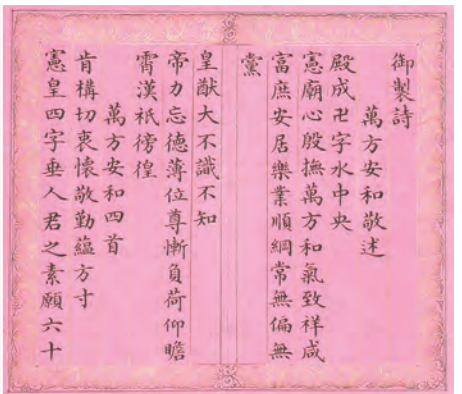 御製詩
萬方安和敬述
殿成卍字水中央
憲廟心殷撫萬方和氣致祥咸
富庶安居樂業順綱常無偏無
黨
皇猷大不識不知
帝力忘德薄位尊慚負荷仰瞻
霄漢祇徬徨
萬方安和四首
肯構切衷懷敬勤蘊方寸
憲皇四字垂人君之素願六十